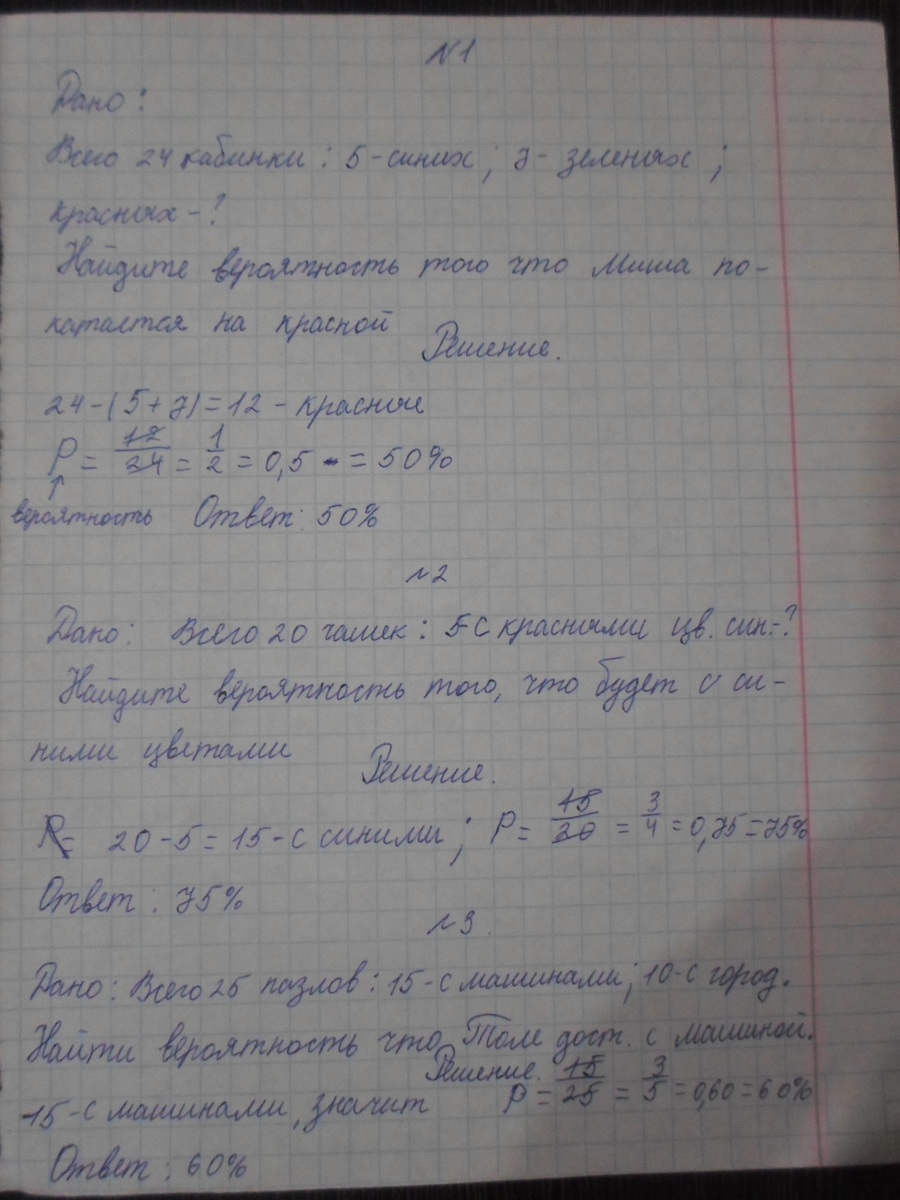 №1
Дано:
Всего 24 кабинки: 5-синих; 7-зеленых;
красных-?
Найдите вероятность того что Миша по-
катается на красной
Решение.
24-(5+7)=12-красные
P = 12/24 = 1/2 = 0,5 = 50%
↑
вероятность Ответ: 50%
№2
Дано: Всего 20 чашек: 5-с красными цв. син.-?
Найдите вероятность того, что будет с си-
ними цветами
Решение.
P= 20-5=15-с синими; P = 15/20 = 3/4 = 0,75=75%
Ответ: 75%
№3.
Дано: Всего 25 пазлов: 15-с машинами; 10-с город.
Найти вероятность что Толе дост. с машиной.
Решение.
15-с машинами, значит P = 15/25 = 3/5 = 0,60=60%
Ответ: 60%